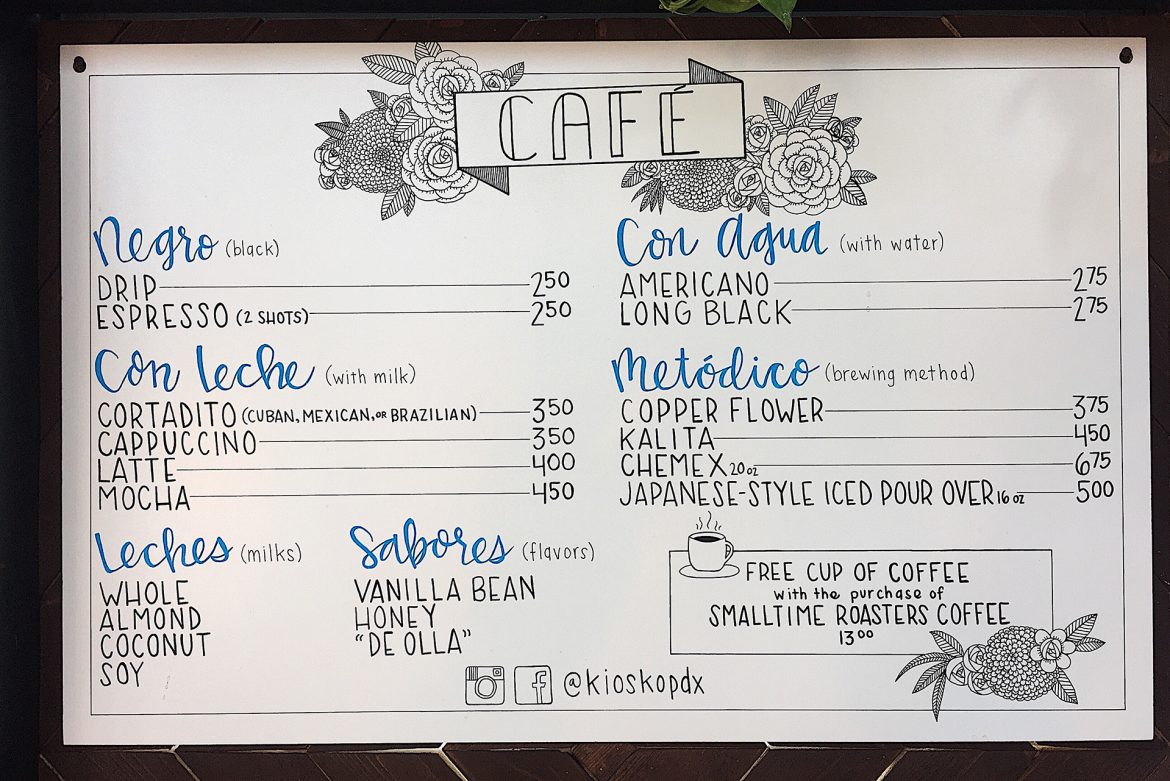 CAFÉ
Negro (black)
DRIP 2 50
ESPRESSO (2 SHOTS) 2 50
Con leche (with milk)
CORTADITO (CUBAN, MEXICAN, OR BRAZILIAN) 3 50
CAPPUCCINO 3 50
LATTE 4 00
MOCHA 4 50
Leches (milks)
WHOLE
ALMOND
COCONUT
SOY
Sabores (flavors)
VANILLA BEAN
HONEY
"DE OLLA"
Con agua (with water)
AMERICANO 2 75
LONG BLACK 2 75
Metódico (brewing method)
COPPER FLOWER 3 75
KALITA 4 50
CHEMEX 20 oz 6 75
JAPANESE-STYLE ICED POUR OVER 16 oz 5 00
FREE CUP OF COFFEE
with the purchase of
SMALLTIME ROASTERS COFFEE
13 00
@kioskopdx